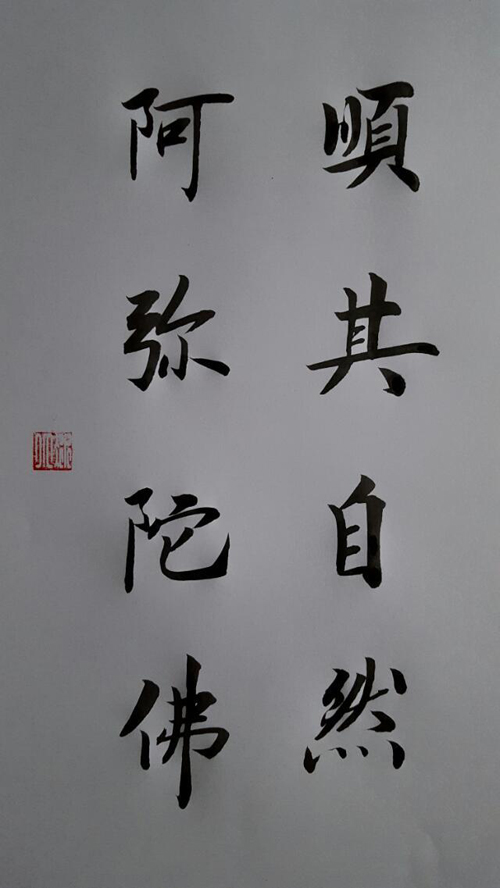 順其自然
阿弥陀佛